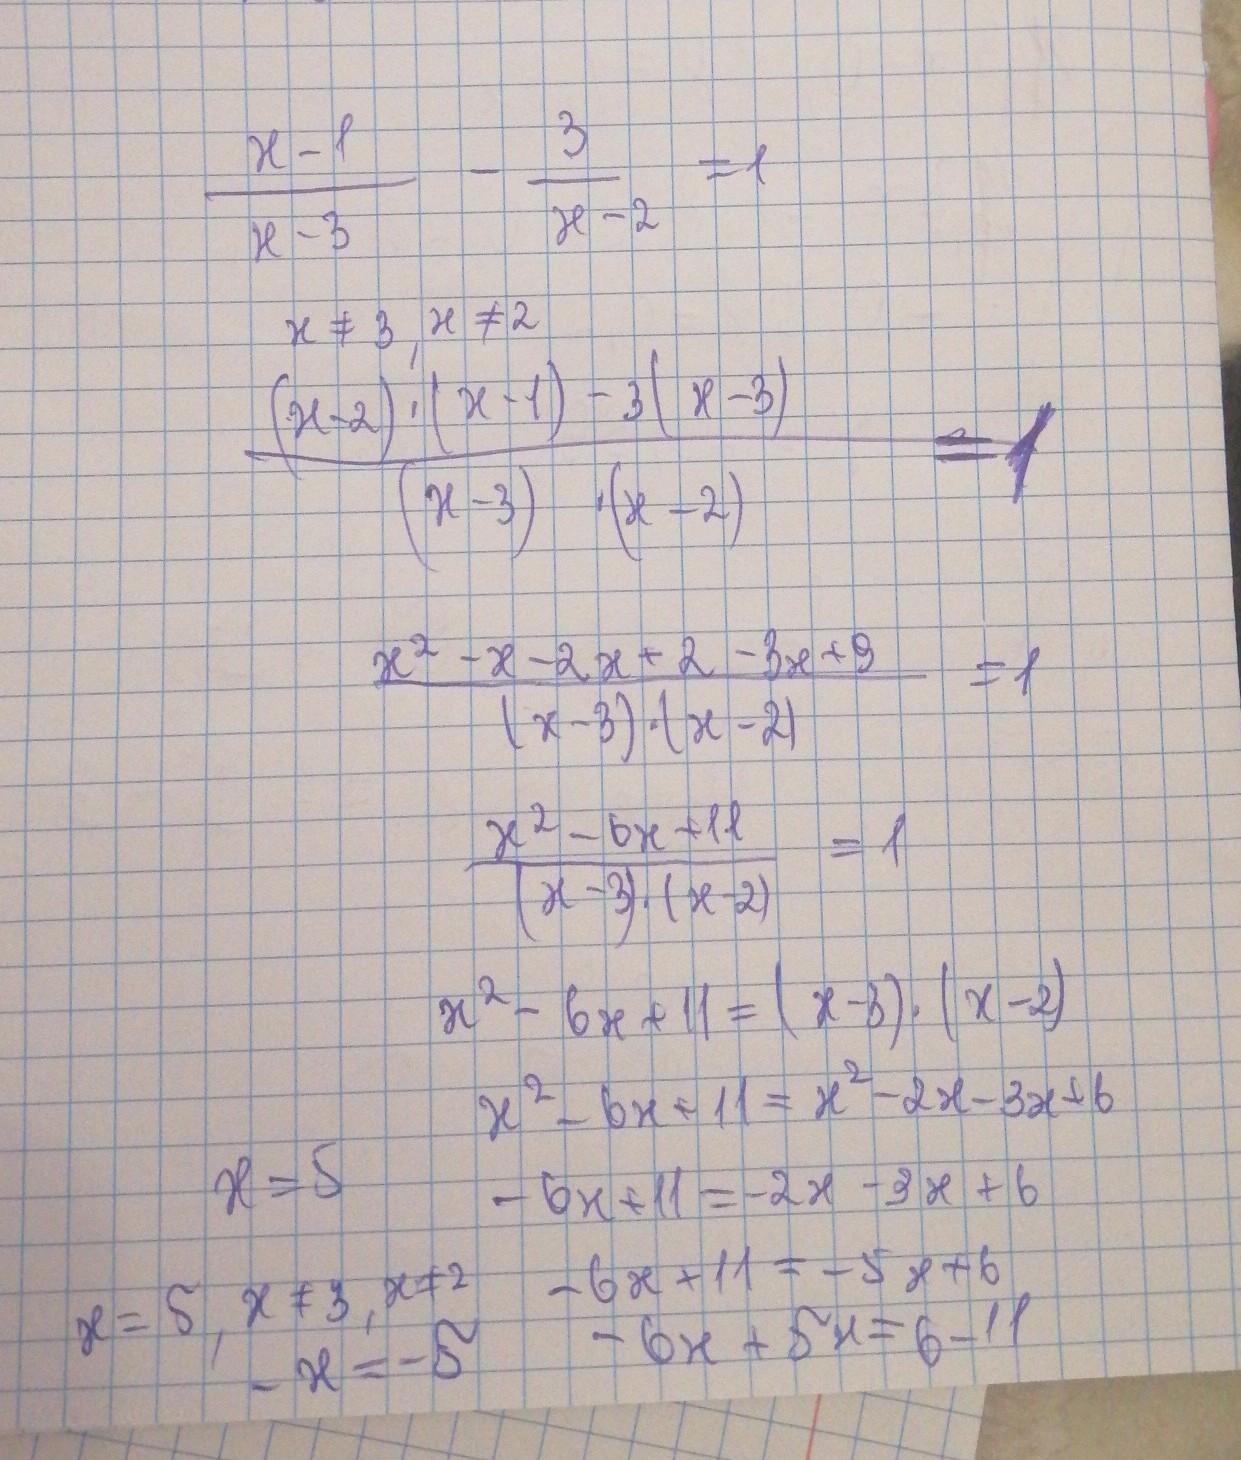 x-1 / x-3 - 3 / x-2 = 1
x ≠ 3, x ≠ 2
(x-2)·(x-1) - 3(x-3) / (x-3)·(x-2) = 1
x² - x - 2x + 2 - 3x + 9 / (x-3)·(x-2) = 1
x² - 6x + 11 / (x-3)·(x-2) = 1
x² - 6x + 11 = (x-3)·(x-2)
x² - 6x + 11 = x² - 2x - 3x + 6
-6x + 11 = -2x - 3x + 6
-6x + 11 = -5x + 6
-6x + 5x = 6 - 11
-x = -5
x = 5
x = 5, x ≠ 3, x ≠ 2